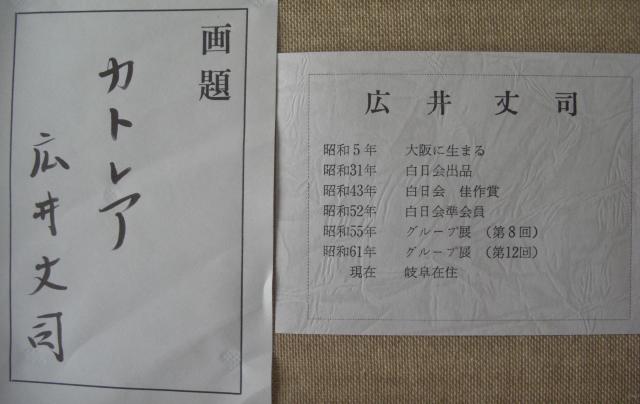 画題
カトレア
広井丈司
広井丈司
昭和5年 大阪に生まる
昭和31年 白日会出品
昭和43年 白日会 佳作賞
昭和52年 白日会準会員
昭和55年 グループ展 (第8回)
昭和61年 グループ展 (第12回)
現在 岐阜在住